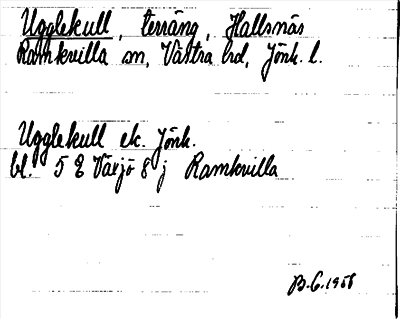 Ugglekull, terräng, Hallsnäs
Ramkvilla sn, Västra hd, Jönk. l.
Ugglekull ek. Jönk.
bl. 5 E Växjö 8 j Ramkvilla
B.G. 1958